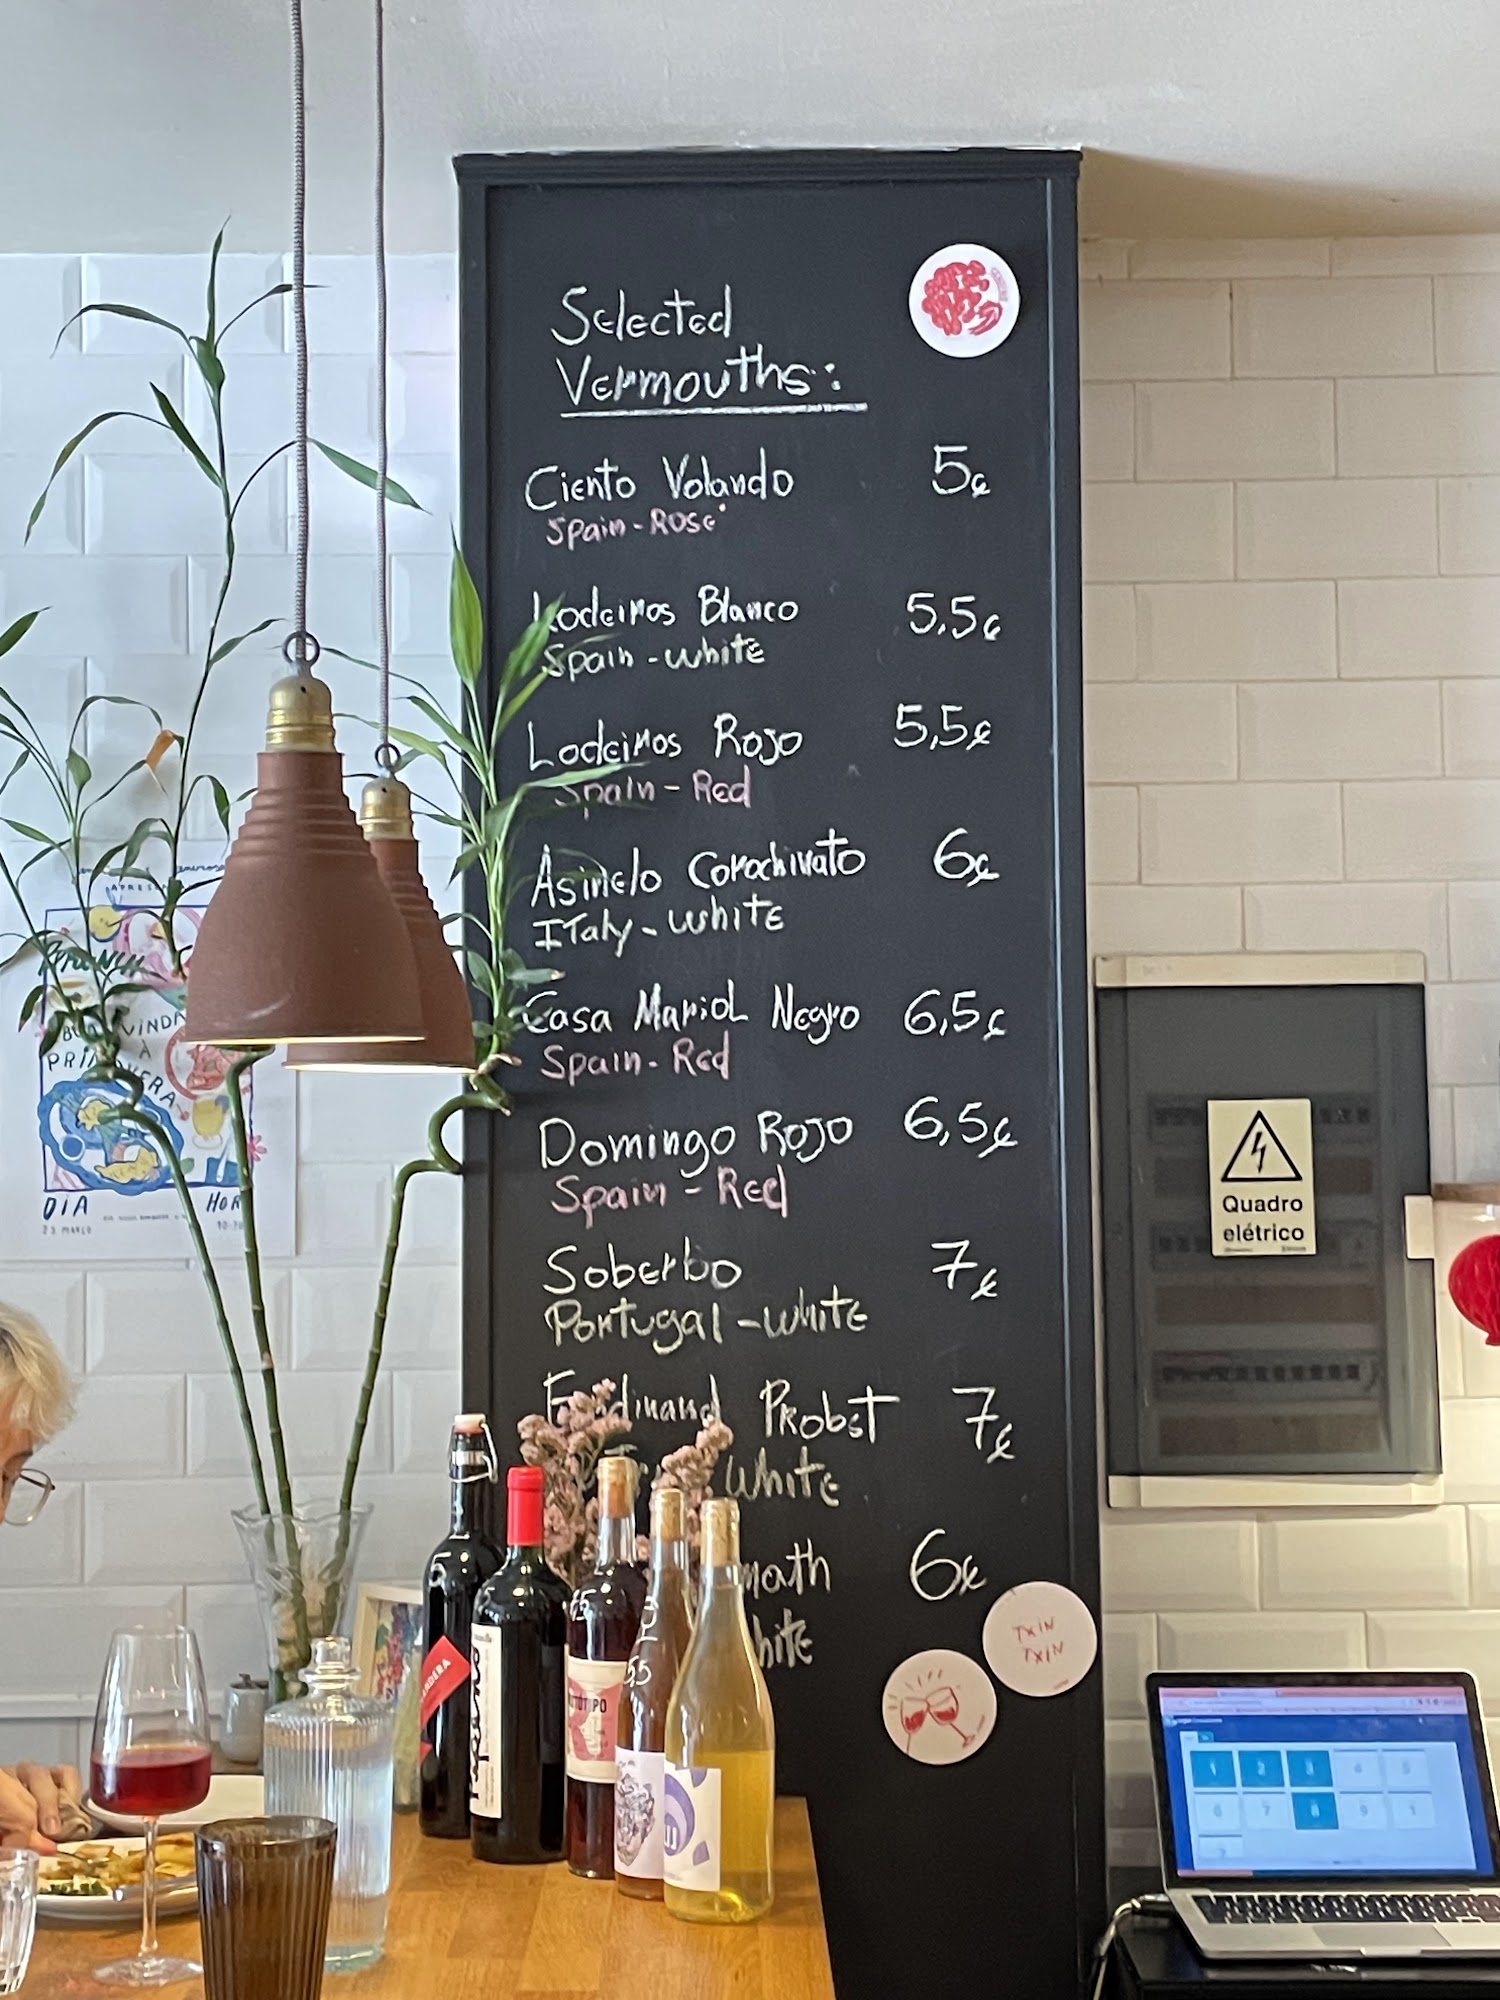 Selected
Vermouths:
Ciento Volando 5€
Spain - Rosé
Lodeiros Blanco 5,5€
Spain - White
Lodeiros Rojo 5,5€
Spain - Red
Asinelo Corochinato 6€
Italy - White
Casa Mariol Negro 6,5€
Spain - Red
Domingo Rojo 6,5€
Spain - Red
Soberbo 7€
Portugal - White
Ferdinand Probst 7€
White
math 6€
hite
TXIN
TXIN
Quadro
elétrico
BRUNCH
VINDA
À
PRIMAVERA
DIA
23 MARÇO
5
5,5
1 2 3 4 5
6 7 8 9